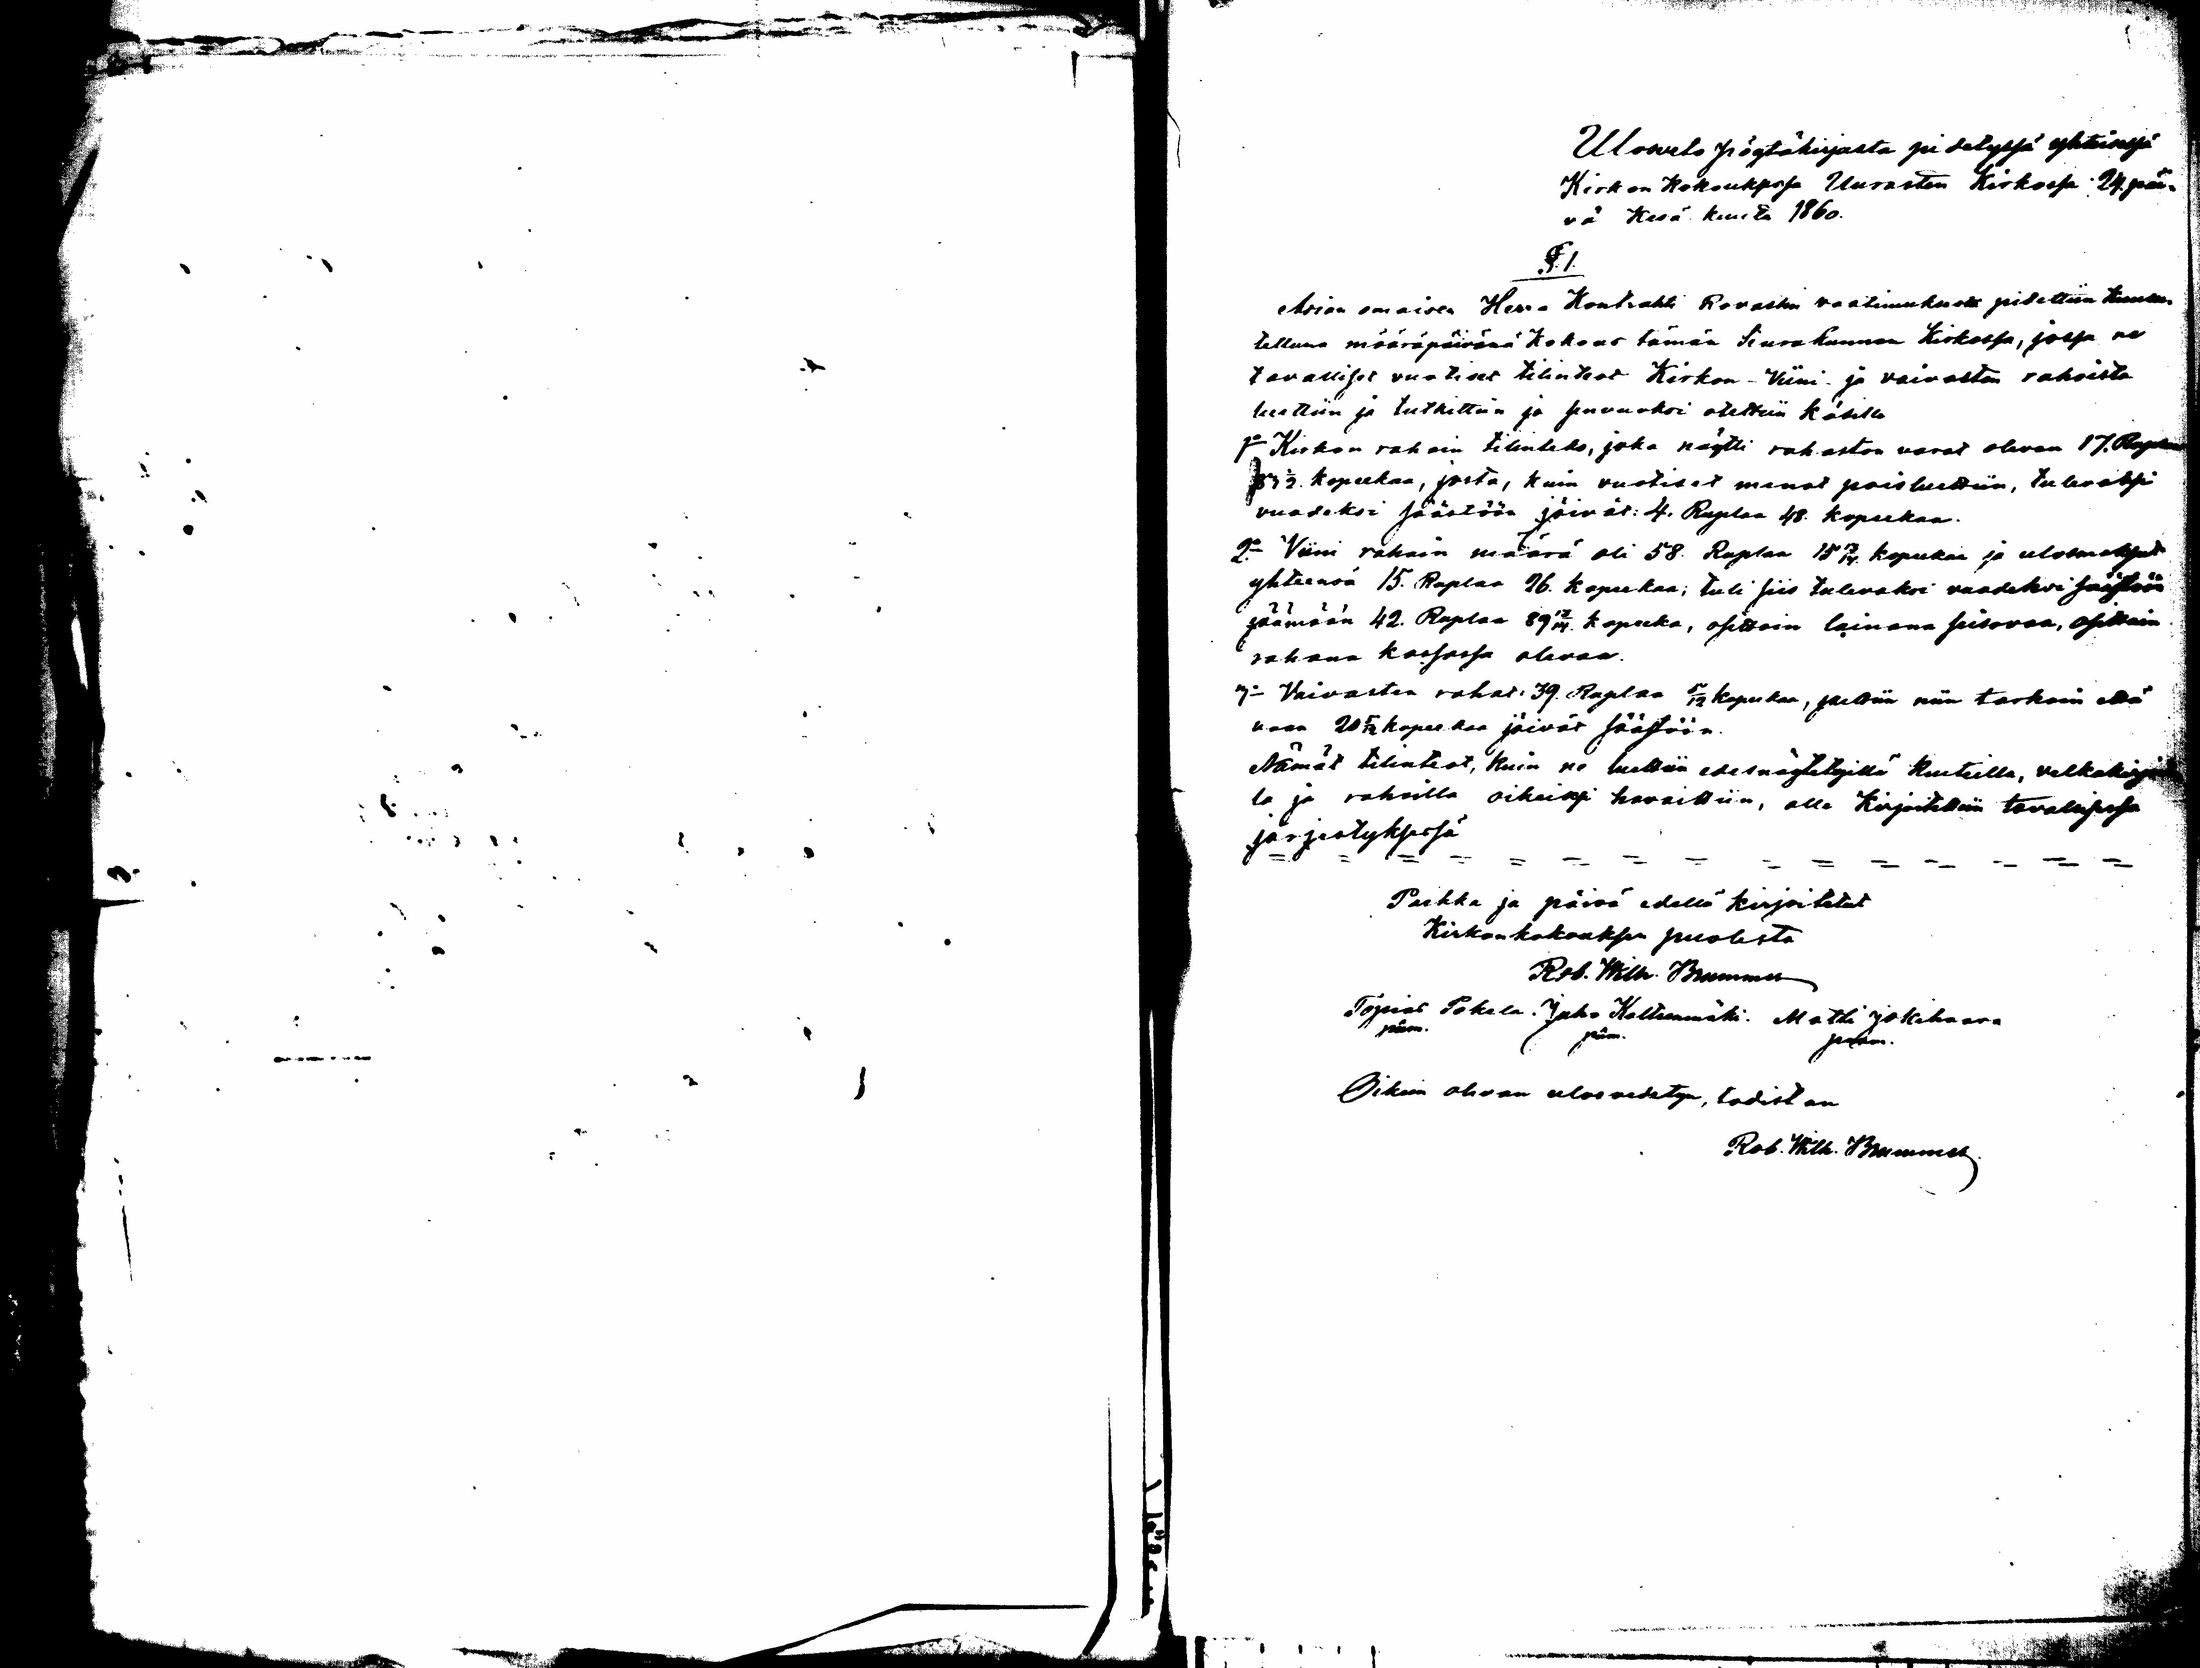 Ulosveto pöytäkirjasta pidetyssä yhteisessä
Kirkon Kokouksessa Uurasten Kirkossa 24. päi-
vä Kesä kuuta 1860.
§. 1.
Asian omaisen Herra Kontrahti Rovastin vaatimuksesta pidettiin Kuulu-
tettuna määräpäivänä Kokous tämän Seurakunnan Kirkossa, jossa ne
tavalliset vuotiset tilinteot Kirkon - Viini - ja vaivasten rahoista
luettiin ja tutkittiin ja seuraaksi otettiin käsille
1:o Kirkon rahain tilinteko, joka näytti rahaston varat olevan 17. Ruplaa
kopeekaa, josta, kuin vuotiset menot poisluettiin, tulevaksi
vuodeksi säästöön jäivät: 4. Ruplaa 48. kopeekaa.
2:o Viini rahain määrä oli 58. Ruplaa 15 kopeekaa ja ulosmaksut
yhteensä 15. Ruplaa 26. kopeekaa; tuli siis tulevaksi vuodeksi säästöön
jäämään 42. Ruplaa 89 kopeeka, osittain lainana seisovaa, osittain
rahana kassassa olevaa.
3:o Vaivasten rahat: 39. Ruplaa 5/12 kopeekaa, jaettiin niin tarkoin että
vaan 20 5/12 kopeekaa jäivät säästöön.
Nämät tilinteot, kuin ne luettiin edesnäytetyillä kuiteilla, velkakirjoil-
la ja rahoilla oikeiksi havaittiin, alle kirjoitettiin tavallisessa
järjestyksessä
= = = = = = = = = = = = = = =
Paikka ja päivä edellä kirjoitetut
Kirkonkokouksen puolesta
Rob. Wilh. Brummer
Topias Pokela. Juho Kaltinmäki. Matti Jokihaara
puum. puum. puum.
Oikein olevan ulosvedetyn, todistan
Rob. Wilh. Brummer